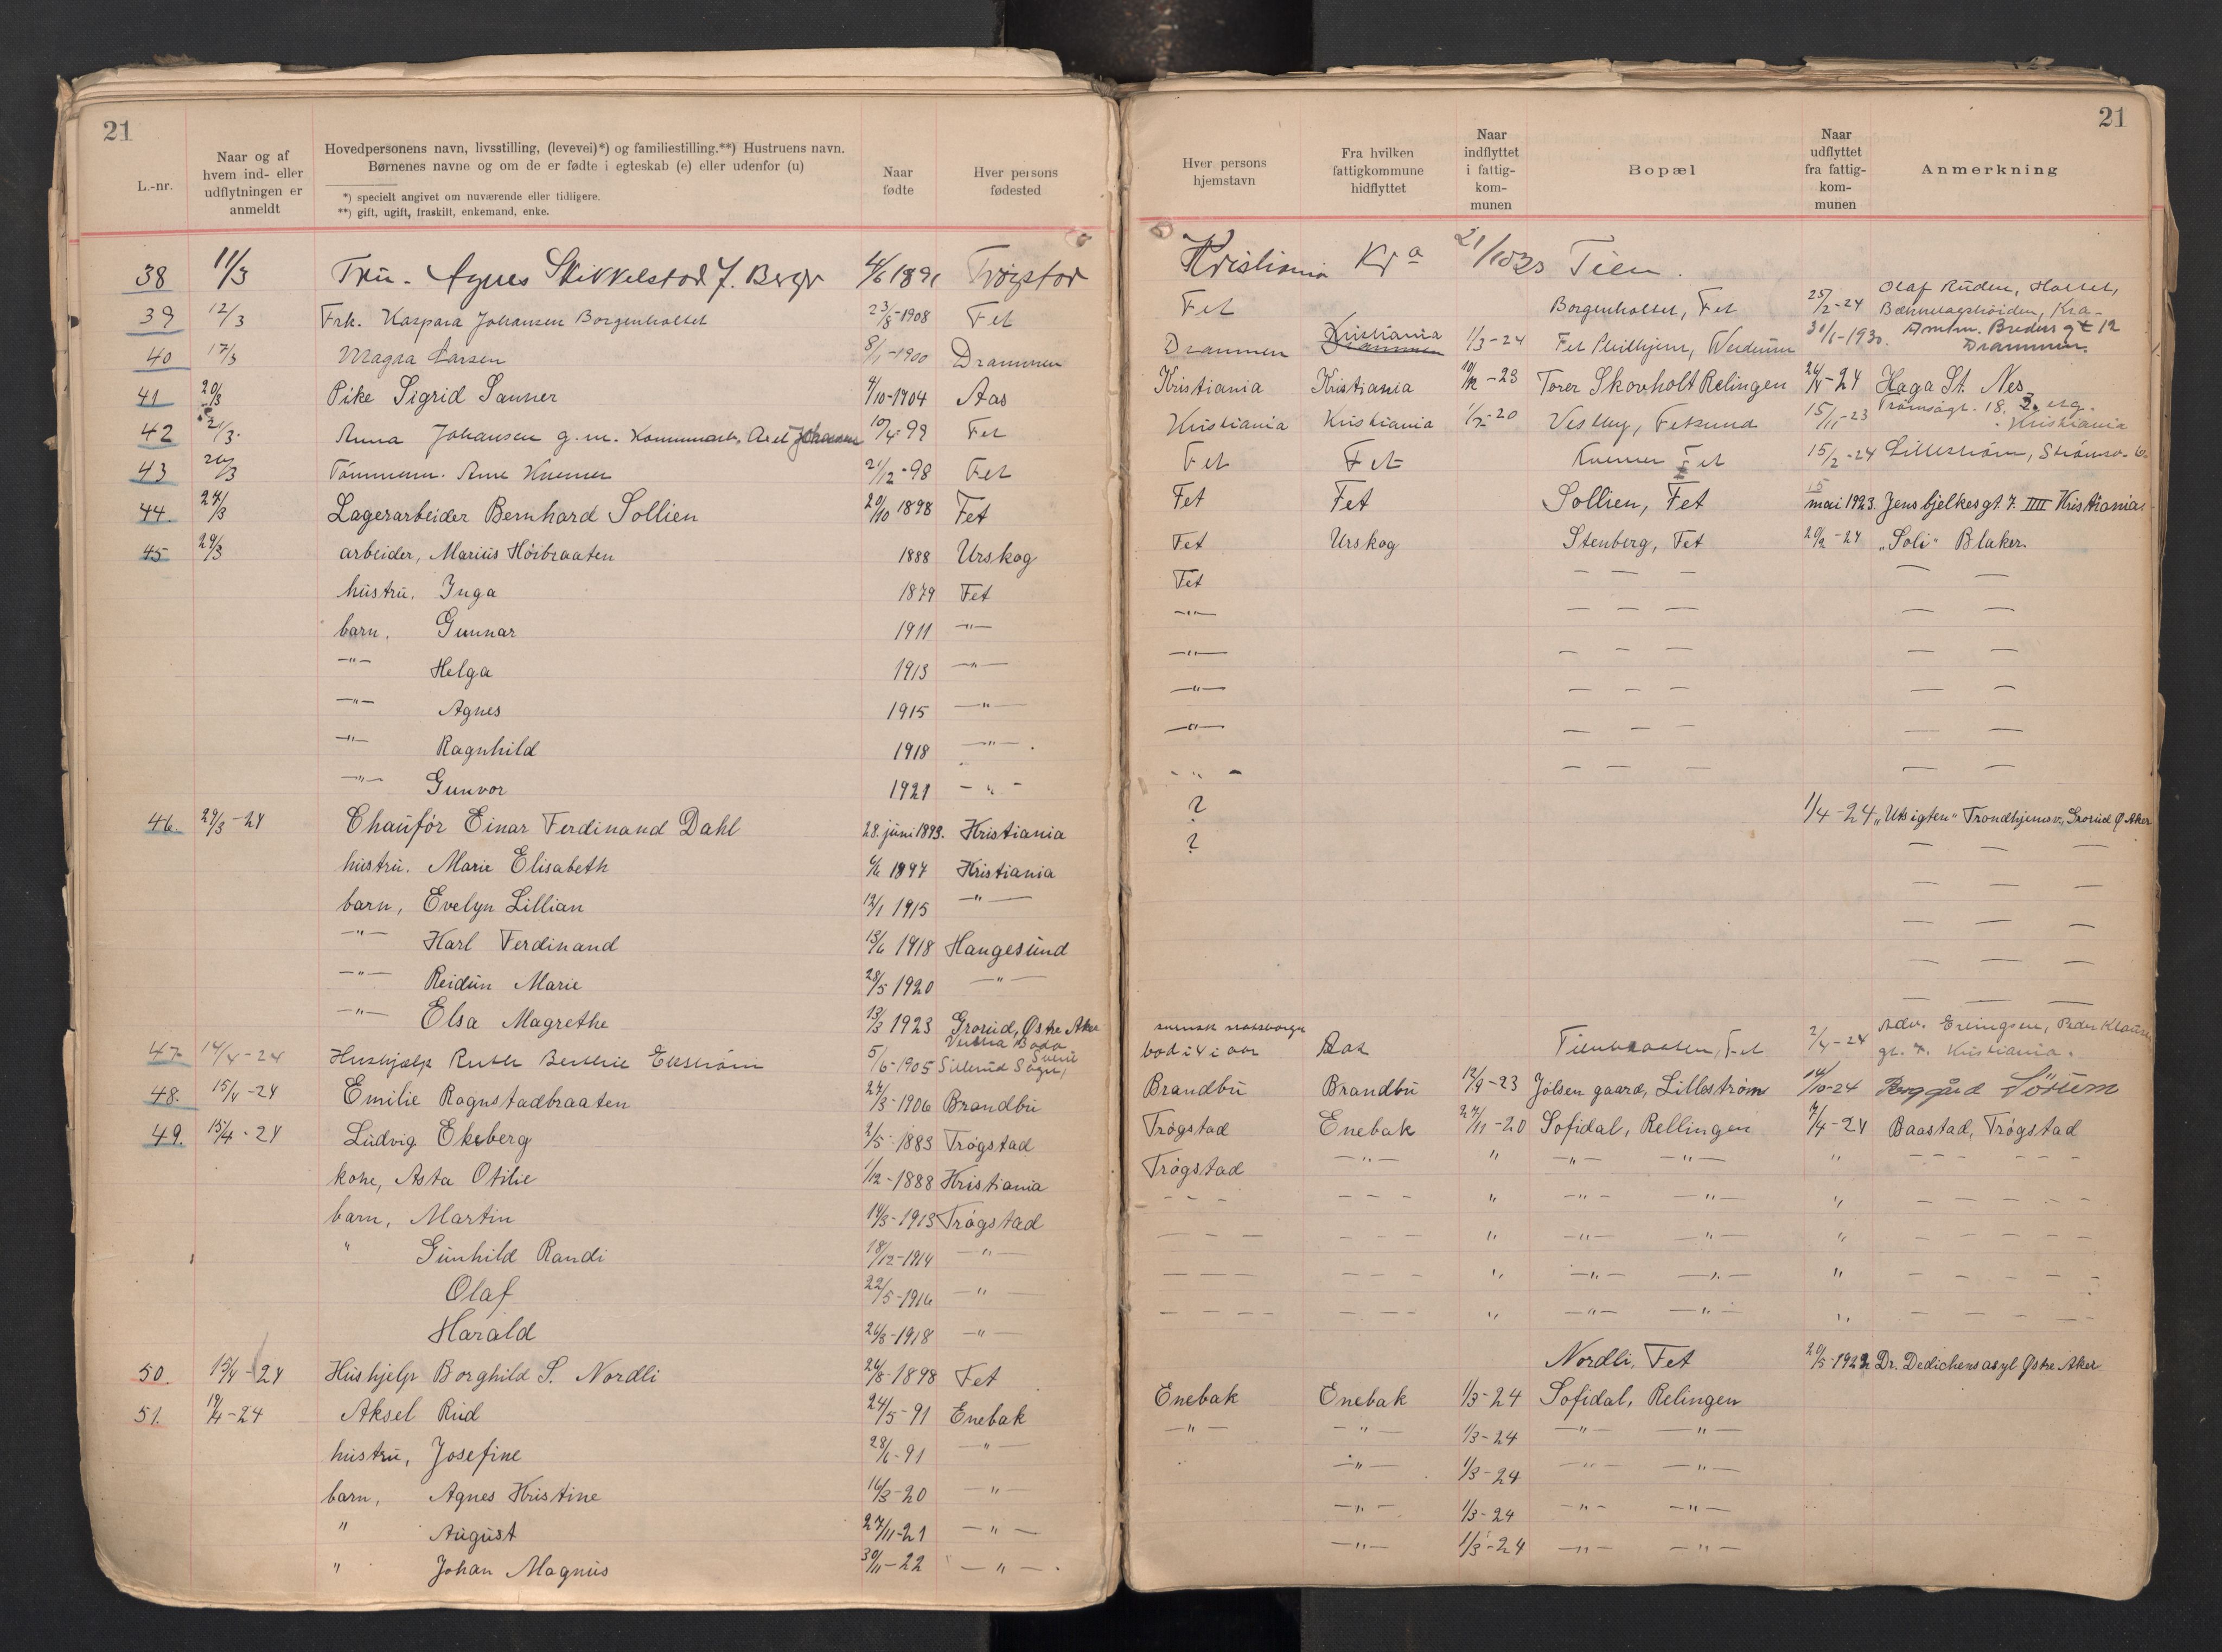 21
L.-nr.
Naar og af hvem ind- eller udflytningen er anmeldt
Hovedpersonens navn, livsstilling, (levevei)*) og familiestilling.**) Hustruens navn.
Børnenes navne og om de er fødte i egteskab (e) eller udenfor (u)
*) specielt angivet om nuværende eller tidligere.
**) gift, ugift, fraskilt, enkemand, enke.
Naar fødte
Hver persons fødested
38 11/3 Fru. Agnes Skikkelstad f. Berger 4/6 1891 Trøgstad
39 12/3 Frk. Kaspara Johansen Borgenholtet 23/8-1908 Fet
40 17/3 Magna Larsen 8/1-1900 Drammen
41 20/3 Pike Sigrid Sanner 4/10-1904 Aas
42 21/3. Anna Johansen g.m. Axel Johansen 10/4-99 Fet
43 20/3 Tømmerm. Arne Kuemer 21/12-98 Fet
44. 24/3 Lagerarbeider Bernhard Sollien 20/10 1898 Fet
45 29/3 arbeider, Marius Høibraaten 1888 Urskog
hustru, Inga 1879 Fet
barn, Gunnar 1911 —"—
—"— Helga 1913 —"—
—"— Agnes 1915 —"—
—"— Ragnhild 1918 —"—.
—"— Gunvor 1921 - " -
46. 29/3-24 Chauffør Einar Ferdinand Dahl 28. juni 1893. Kristiania
hustru. Marie Elisabeth 6/6 1897 Kristiania
barn, Evelyn Lillian 12/1 1915 —"—
—"— Karl Ferdinand 13/6 1918 Haugesund
—"— Reidun Marie 28/5 1920 —"—
—"— Elsa Magrethe 13/3 1923 Grorud, Østre Aker
47. 14/4-24 Hushjælp Ruth Ekstrøm 5/6-1905 Sillerud Sogn,
48. 15/4-24 Emilie Rognstadbraaten 24/3-1906 Brandbu
49. 15/4-24 Ludvig Ekeberg 2/5-1883 Trøgstad
kone, Asta Otilie 1/12-1888 Kristiania
barn, Martin 14/3-1913 Trøgstad
" Gunhild Randi 18/12-1914 —"—
Olaf 22/5-1916 —"—
Harald 26/8-1918 —"—
50. 15/4-24 Hushjelp Borghild S. Nordli 26/8-1898 Fet
51. 19/4-24 Aksel Rud 24/5-91 Enebak
hustru, Josefine 28/6-91 —"—
barn, Agnes Kristine 16/3-20 —"
" August 27/11-21 —"—
" Johan Magnus 30/11-22 —"—.
21
Hver persons hjemstavn
Fra hvilken fattigkommune hidflyttet
Naar indflyttet i fattig-kom-munen
Bopæl
Naar udflyttet fra fattig-kom-munen
Anmerkning
Kristiania Kra 21/10 23 Tien.
Fet Borgenholtet, Fet 25/2-24 Olaf Ruden, Holtet, Bækkelagshøiden, Kra-
Drammen Drammen Kristiania 1/3-24 Fet Pleiehjem, 31/1-1930. Amtm. Bredersgt 12 Drammen.
Kristiania Kristiania 10/12-23 Torer Skovholt Relingen 24/4-24 Haga St. Nes
Kristiania Kristiania 1/2-20 Vestby, Fetsund 15/11-23 Tromsøgt. 18. 2. etg. Kristiania
Fet Fet Kuemer Fet 15/2-24 Lillestrøm,
Fet Fet Sollien, Fet 15 mai 1923. Jens bjelkesgt. 7. IIII Kristiania
Fet Urskog Stenberg, Fet 20/2-24 „Soli" Blaker.
Fet — — — — —
—"— — — — — —
—"— — — — — —
—"— — — — — —
—"— — — — — —
- " - — — — — —
? 1/4-24 „Utsigten" Trondhjemsv., Grorud Ø Aker
? — — —
— —
— —
— —
— — —
svensk statsborger bod i 4 i aar Aas Tienbraaten, Fet 2/4-24 Adv. Erlingsen, Peder Klausens gt. 7. Kristiania.
Brandbu Brandbu 12/9-23 Jølsen gaard, Lillestrøm 14/10-24 Berggård Sørum
Trøgstad Enebak 27/11-20 Sofidal, Rellingen 7/4-24 Baastad, Trøgstad
Trøgstad —"— " —"— —"— " - - - - - -
- - - - - - " —"— —"— " - - - - -
- - - - - - " —"— —"— " - - - - -
- - - - - - " —"— —"— " - - - - -
- - - - - - " —"— —"— " - - - - -
Nordli, Fet 20/5-1922 Dr. Dedichens asyl Østre Aker
Enebak Enebak 1/3-24 Sofidal, Relingen
—"— —"— 1/3-24 —"— —"—
—"— 1/3-24 —"— —"—
—"— 1/3-24 —"— —"—
—"— 1/3-24 —"— —"—